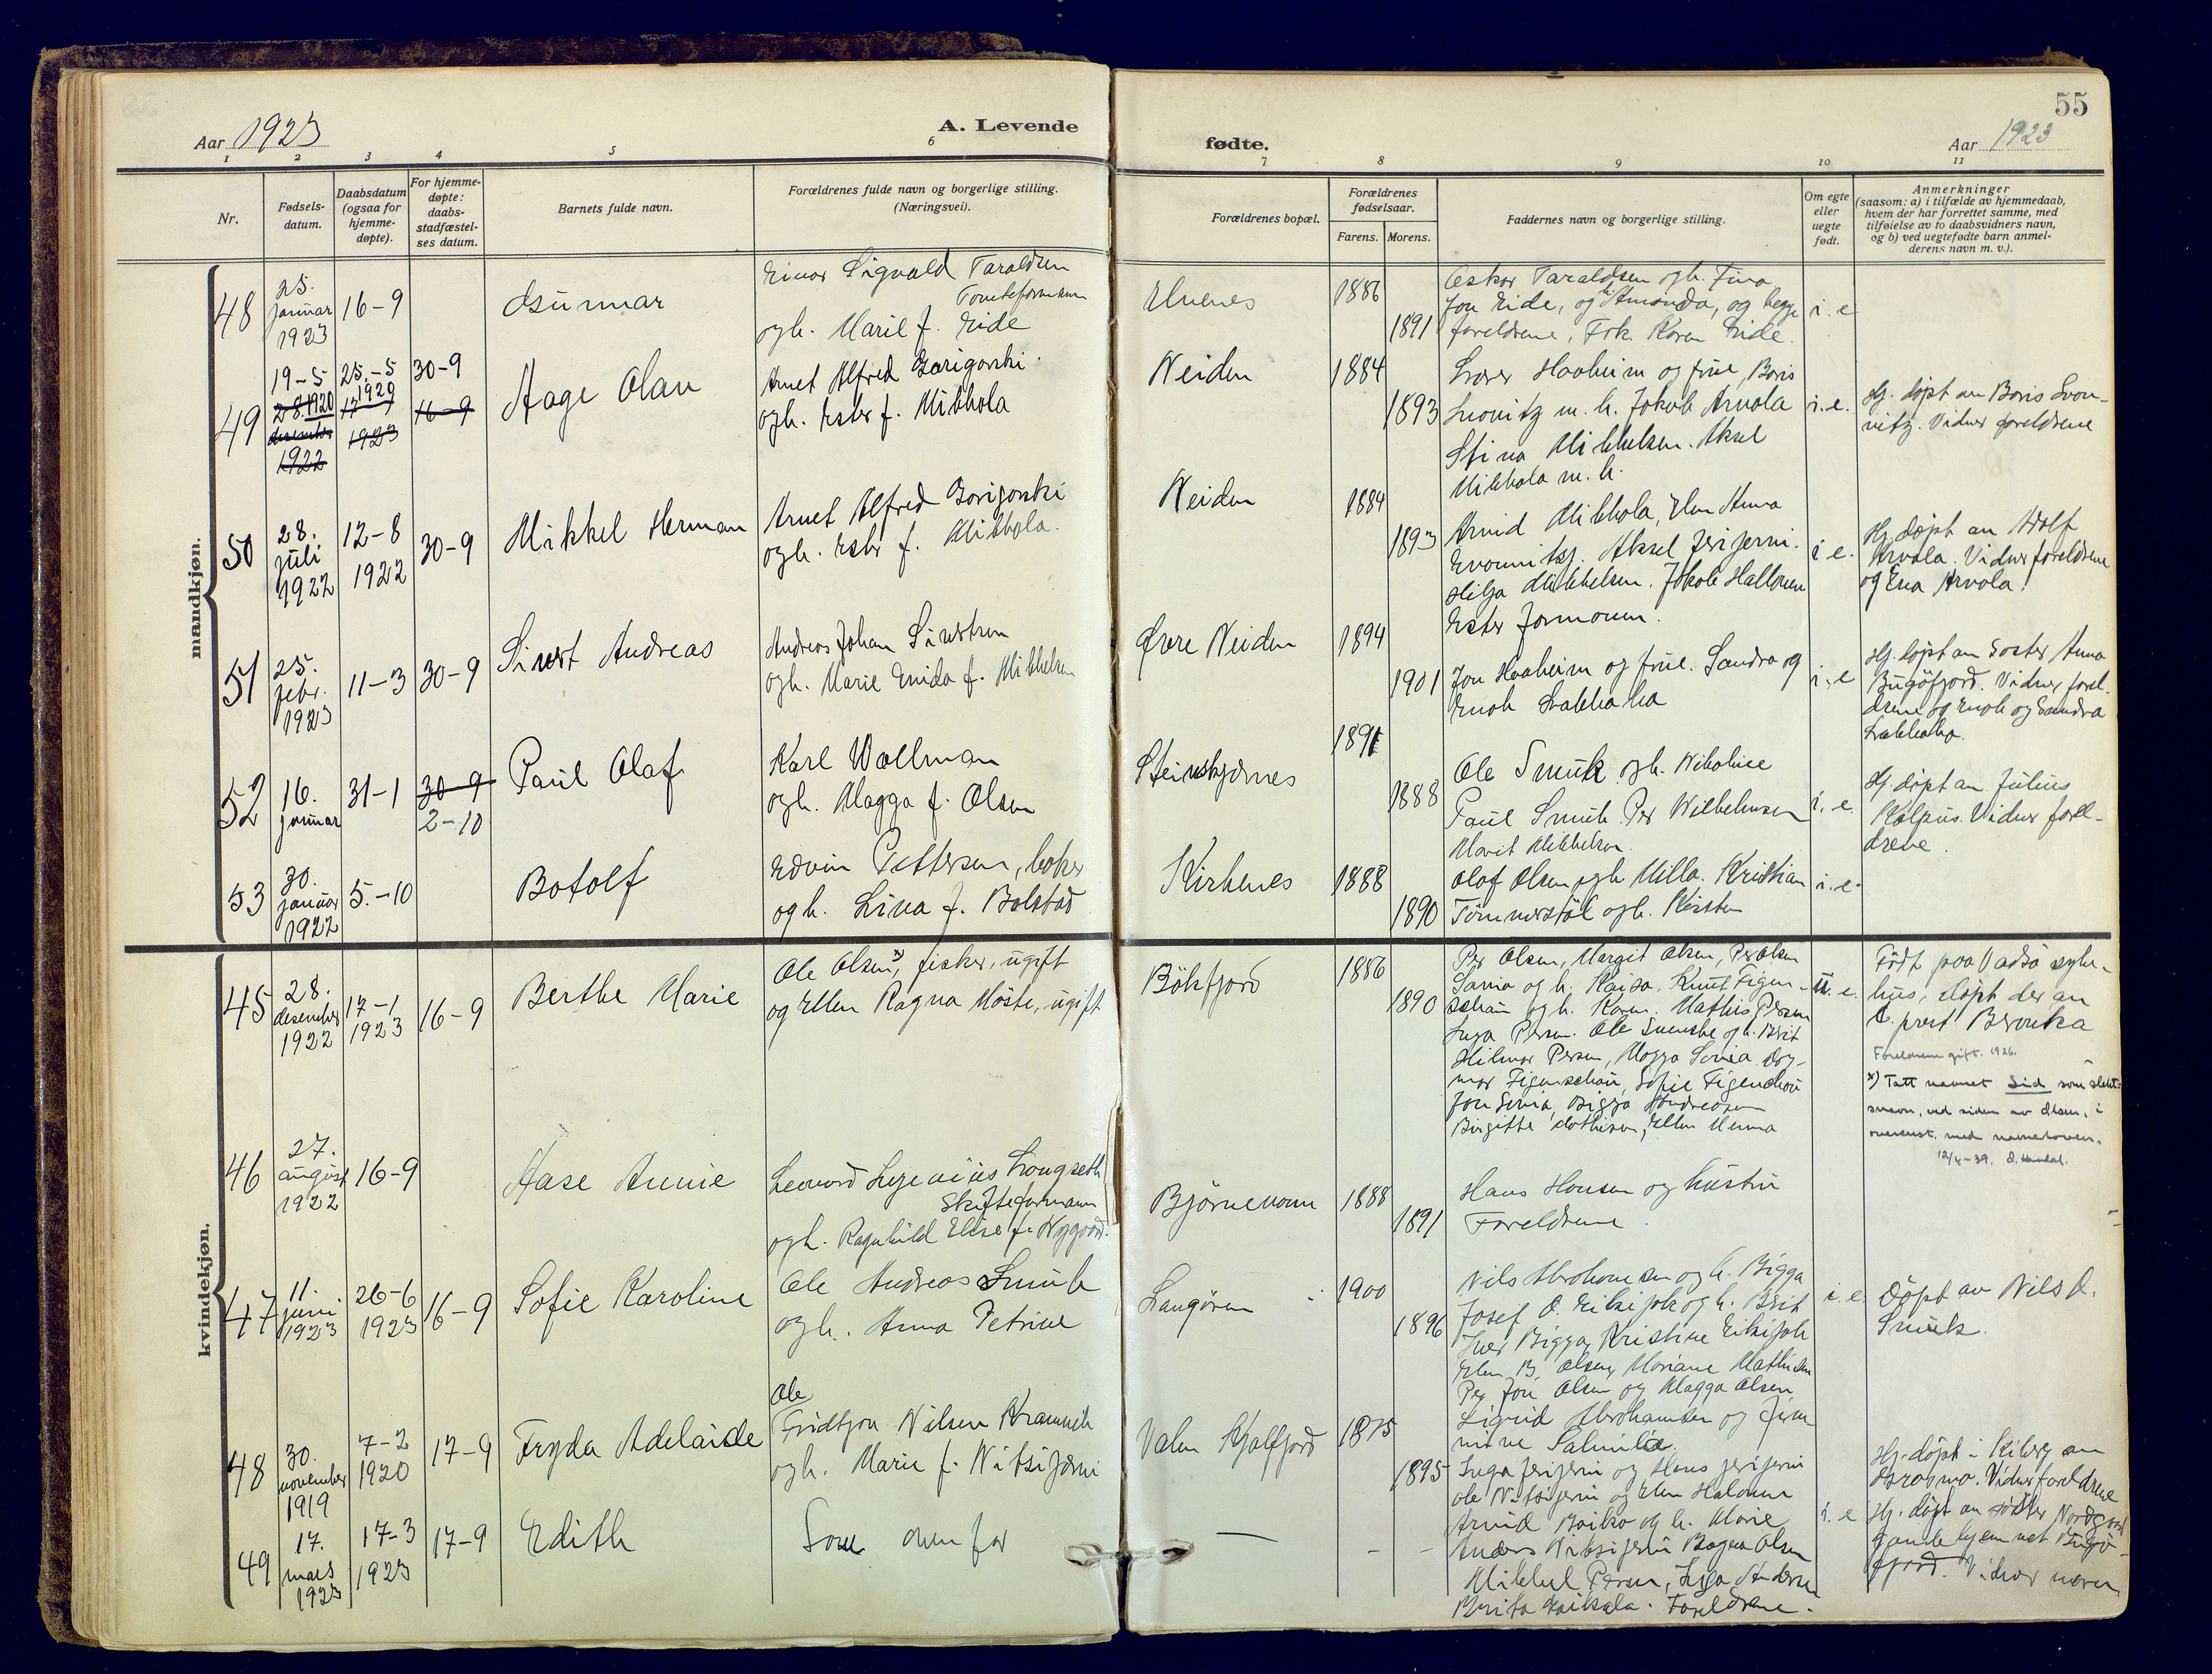 Aar 1923
A. Levende
1 2 3 4 5 6
Nr.
Fødsels-
datum.
Daabsdatum
(ogsaa for
hjemme-
døpte).
For hjemme-
døpte:
daabs-
stadfæstel-
ses datum.
Barnets fulde navn.
Forældrenes fulde navn og borgerlige stilling.
(Næringsvei).
mandkjøn.
48
25.
januar
1923
16-9
Gunnar
Einar Sigvald Taraldsen
ogh. Marie f. Eide
49
19-5
28 1920
desember
1922
25.-5
1920
1923
30-9
16-9
Aage Olav
Arnet Alfred
ogh. Ester f. Mikkola
50
28.
juli
1922
12-8
1922
30-9
Mikkel Herman
Arnet Alfred
ogh. Ester f. Mikkola.
51
25.
febr.
1923
11-3
30-9
Sivert Andreas
Andreas Johan Sivertsen
ogh. Marie Enida f. Mikkelsen
52
16.
januar
31-1
30-9
2-10
Paul Olaf
Karl Wallman
ogh. Magga f. Olsen
53
30.
januar
1922
5.-10
Botolf
Edvin Pettersen, baker
ogh. Lina f. Bolstad
kvindekjøn.
45
28.
desember
1922
17-1
1923
16-9
Berthe Marie
Ole Olsen x), fisker, ugift
og Ellen Ragna Moste, ugift
46
27.
august
1922
16-9
Aase Annie
Leonard Langseth
Skifteformann
ogh. Ragnhild Elise f. Nygaard.
47
11.
juni
1923
26-6
1923
16-9
Sofie Karoline
Ole Andreas Smuk
ogh. Anna Petrine
48
30.
november
1919
7-2
1920
17-9
Fryda Adelaide
Ole
Fridtjon Nilsen
ogh. Marie f. Nitsijærvi
49
17.
mars
1923
17-3
1923
17-9
Edith
Som oven for
55
fødte.
Aar 1923
7 8 9 10 11
Forældrenes bopæl.
Forældrenes
fødselsaar.
Farens. Morens.
Faddernes navn og borgerlige stilling.
Om egte
eller
uegte
født.
Anmerkninger
(saasom: a) i tilfælde av hjemmedaab,
hvem der har forrettet samme, med
tilføielse av to daabsvidners navn,
og b) ved uegtefødte barn anmel-
derens navn m. v.).
Elvenes
1886
1891
Oskar Taraldsen ogh. Fina
Jon Eide, og h. Amanda, og begge
foreldrene, Frk. Karen Eide.
i. e
Neiden
1884
1893
Haaheim og frue, Boris
m. h. Jakob Arvola
Stina Mikkelsen. Aksel
Mikkola m. h.
i. e.
Hj. døpt av Boris
Vidner foreldrene
Neiden
1884
1893
Arvid Mikkola, Elen Anna
Aksel Jerijervi.
Hilja Mikkelsen. Jakob Hallonen
Ester
i e.
Hj. døpt av Adolf
Arvola. Vidner foreldrene
og Eva Arvola.
Øvre Neiden
1894
1901
Jon Haaheim og frue. Sandra og
Enok Labbaha
i. e
Hj. døpt av søster Anna
Bugøfjord. Vidner forel-
drene og Enok og Sandra
Labbaha.
Steinskjærnes
1891
1888
Ole Smuk ogh. Nikoline
Paul Smuk. Per Wilhelmsen
Marit Mikkelsen.
i. e
Hj. døpt av Julius
Kalpus. Vidner forel-
drene.
Kirkenes
1888
1890
Olaf Olsen ogh Milla. Kristian
Tømmerstøl ogh. Kirsten
i. e.
Bøkfjord
1886
1890
Per Olsen, Margit Olsen, Per Olsen
Savia og h. Kaisa. Knut Figen-
schau og h. Karen. Mathis Persen
Inga Persen. Ole Svenske og h. Brit
Hilmar Persen, Magga Savia. Dag-
mar Figenschau, Sofie Figenschau
Jon Savia, Bigga Andreasen
Birgitte Mathisen, Ellen
u. e.
Født paa Vadsø syke-
hus, døpt der av
s. prest Beronka
Foreldrene gift. 1926.
x) Tatt navnet Lid som slekt-
snavn, ved siden av Olsen, i
overenst. med navneloven.
12/4-39.
Bjørnevann
1888
1891
Hans Hansen og hustru
Foreldrene.
Langøren
1900
1896
Nils Abrahamsen og h. Bigga
Josef O. og h. Brit
Iver Bigga, Kristine
Elen B. Olsen, Mariane Mathisen
Per Jon Olsen og Magga Olsen.
i. e
Døpt av Nils O.
Smuk.
Valen Kjølfjord
1875
1895
Sigrid Abrahamsen og
Inga Jerijervi og Hans Jerijervi
Ole Nitsijervi og Elen Halonen
Hj. døpt i Kiberg av
Vidner foreldrene
—
– –
Arvid Boiko og h. Marie
Anders Nitsijervi Ragna Olsen
Mikkel Persen, Inga Andersen
Brita Foreldrene.
i. e
Hj. døpt av søster Nordgaard
gamle hjemmet Bugø-
fjord. Vidner moren